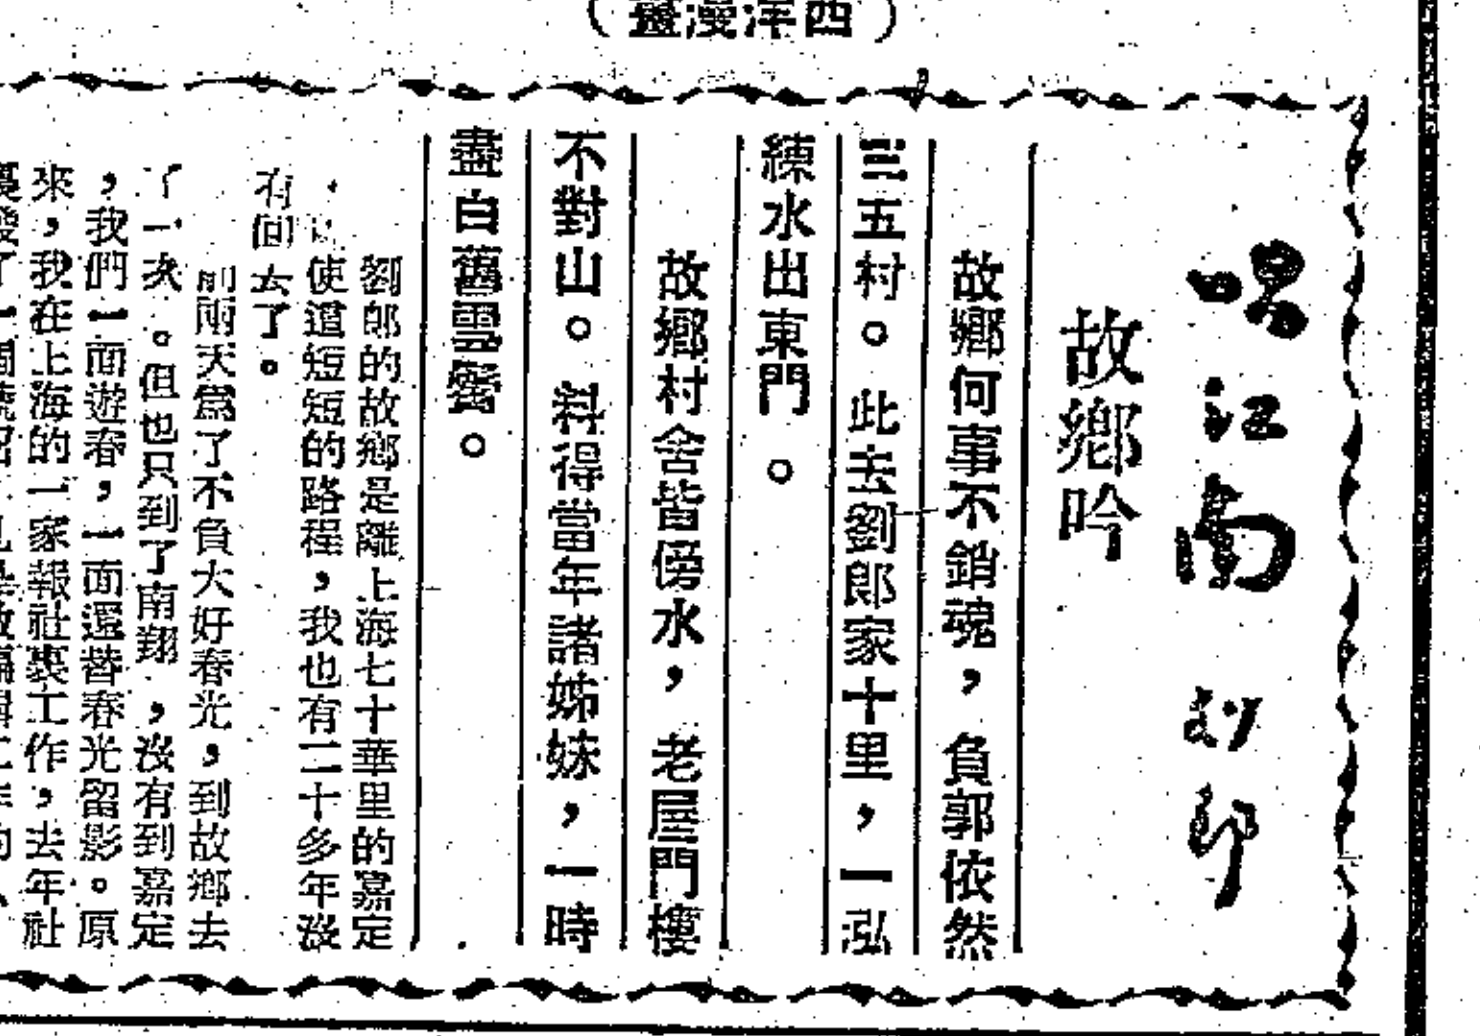 （西洋漫畫）
唱江南 劉郎
故鄉吟
故鄉何事不銷魂，負郭依然
三五村。此去劉郎家十里，一泓
練水出東門。
故鄉村舍皆傍水，老屋門樓
不對山。料得當年諸姊妹，一時
盡白舊雲鬟。
劉郎的故鄉是離上海七十華里的嘉定
，使這短短的路程，我也有二十多年沒
有回去了。
前兩天爲了不負大好春光，到故鄉去
了一次。但也只到了南翔，沒有到嘉定
，我們一面遊春，一面還替春光留影。原
來，我在上海的一家報社裏工作，去年社